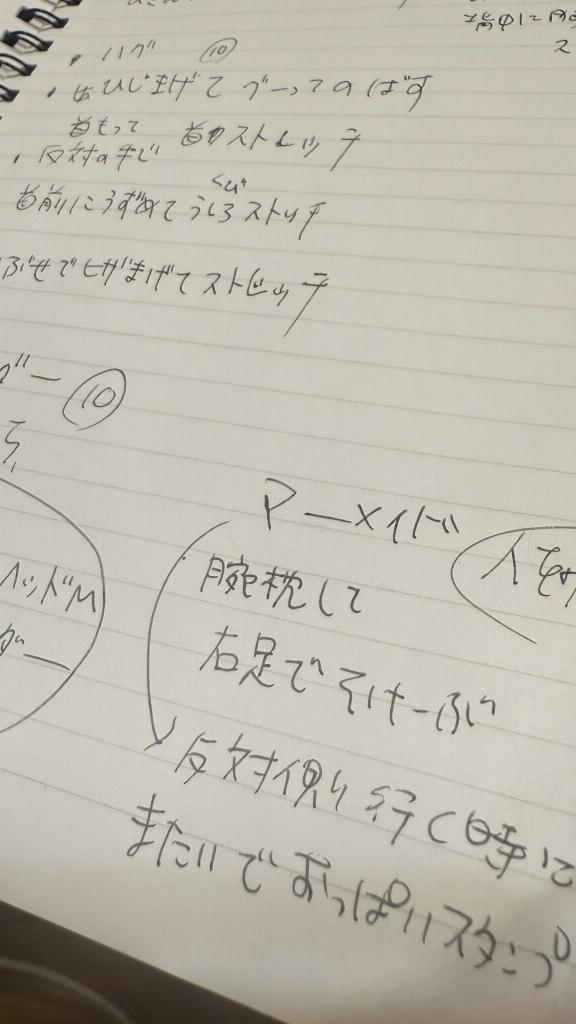 背中に
ス
・ハグ ⑩
・ひじまげて グーってのばす
首もって 首のストレッチ
・反対の手で
首前にうずめてうしろストレッチ
くび
ぶせでヒザまげてストレッチ
ダー ⑩
ら
ヘッドM
ダー
マーメイド
人を
腕枕して
右足で
反対側り行く時に
またいでおっぱいスタンプ